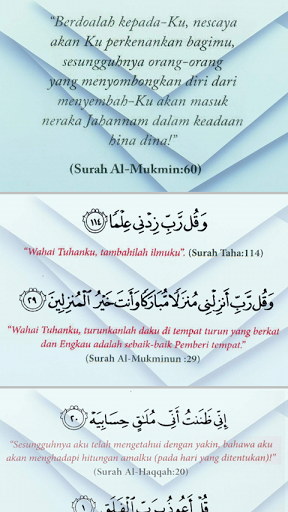 “Berdoalah kepada-Ku, nescaya
akan Ku perkenankan bagimu,
sesungguhnya orang-orang
yang menyombongkan diri dari
menyembah-Ku akan masuk
neraka Jahannam dalam keadaan
hina dina!”
(Surah Al-Mukmin:60)
وَقُل رَّبِّ زِدْنِي عِلْمًا ١١٤
“Wahai Tuhanku, tambahilah ilmuku”. (Surah Taha:114)
وَقُل رَّبِّ أَنزِلْنِي مُنزَلًا مُّبَارَكًا وَأَنتَ خَيْرُ الْمُنزِلِينَ ٢٩
“Wahai Tuhanku, turunkanlah daku di tempat turun yang berkat
dan Engkau adalah sebaik-baik Pemberi tempat.”
(Surah Al-Mukminun :29)
إِنِّي ظَنَنتُ أَنِّي مُلَاقٍ حِسَابِيَهْ ٢٠
“Sesungguhnya aku telah mengetahui dengan yakin, bahawa aku
akan menghadapi hitungan amalku (pada hari yang ditentukan)!”
(Surah Al-Haqqah:20)
قُلْ أَعُوذُ بِرَبِّ الْفَلَقِ ١